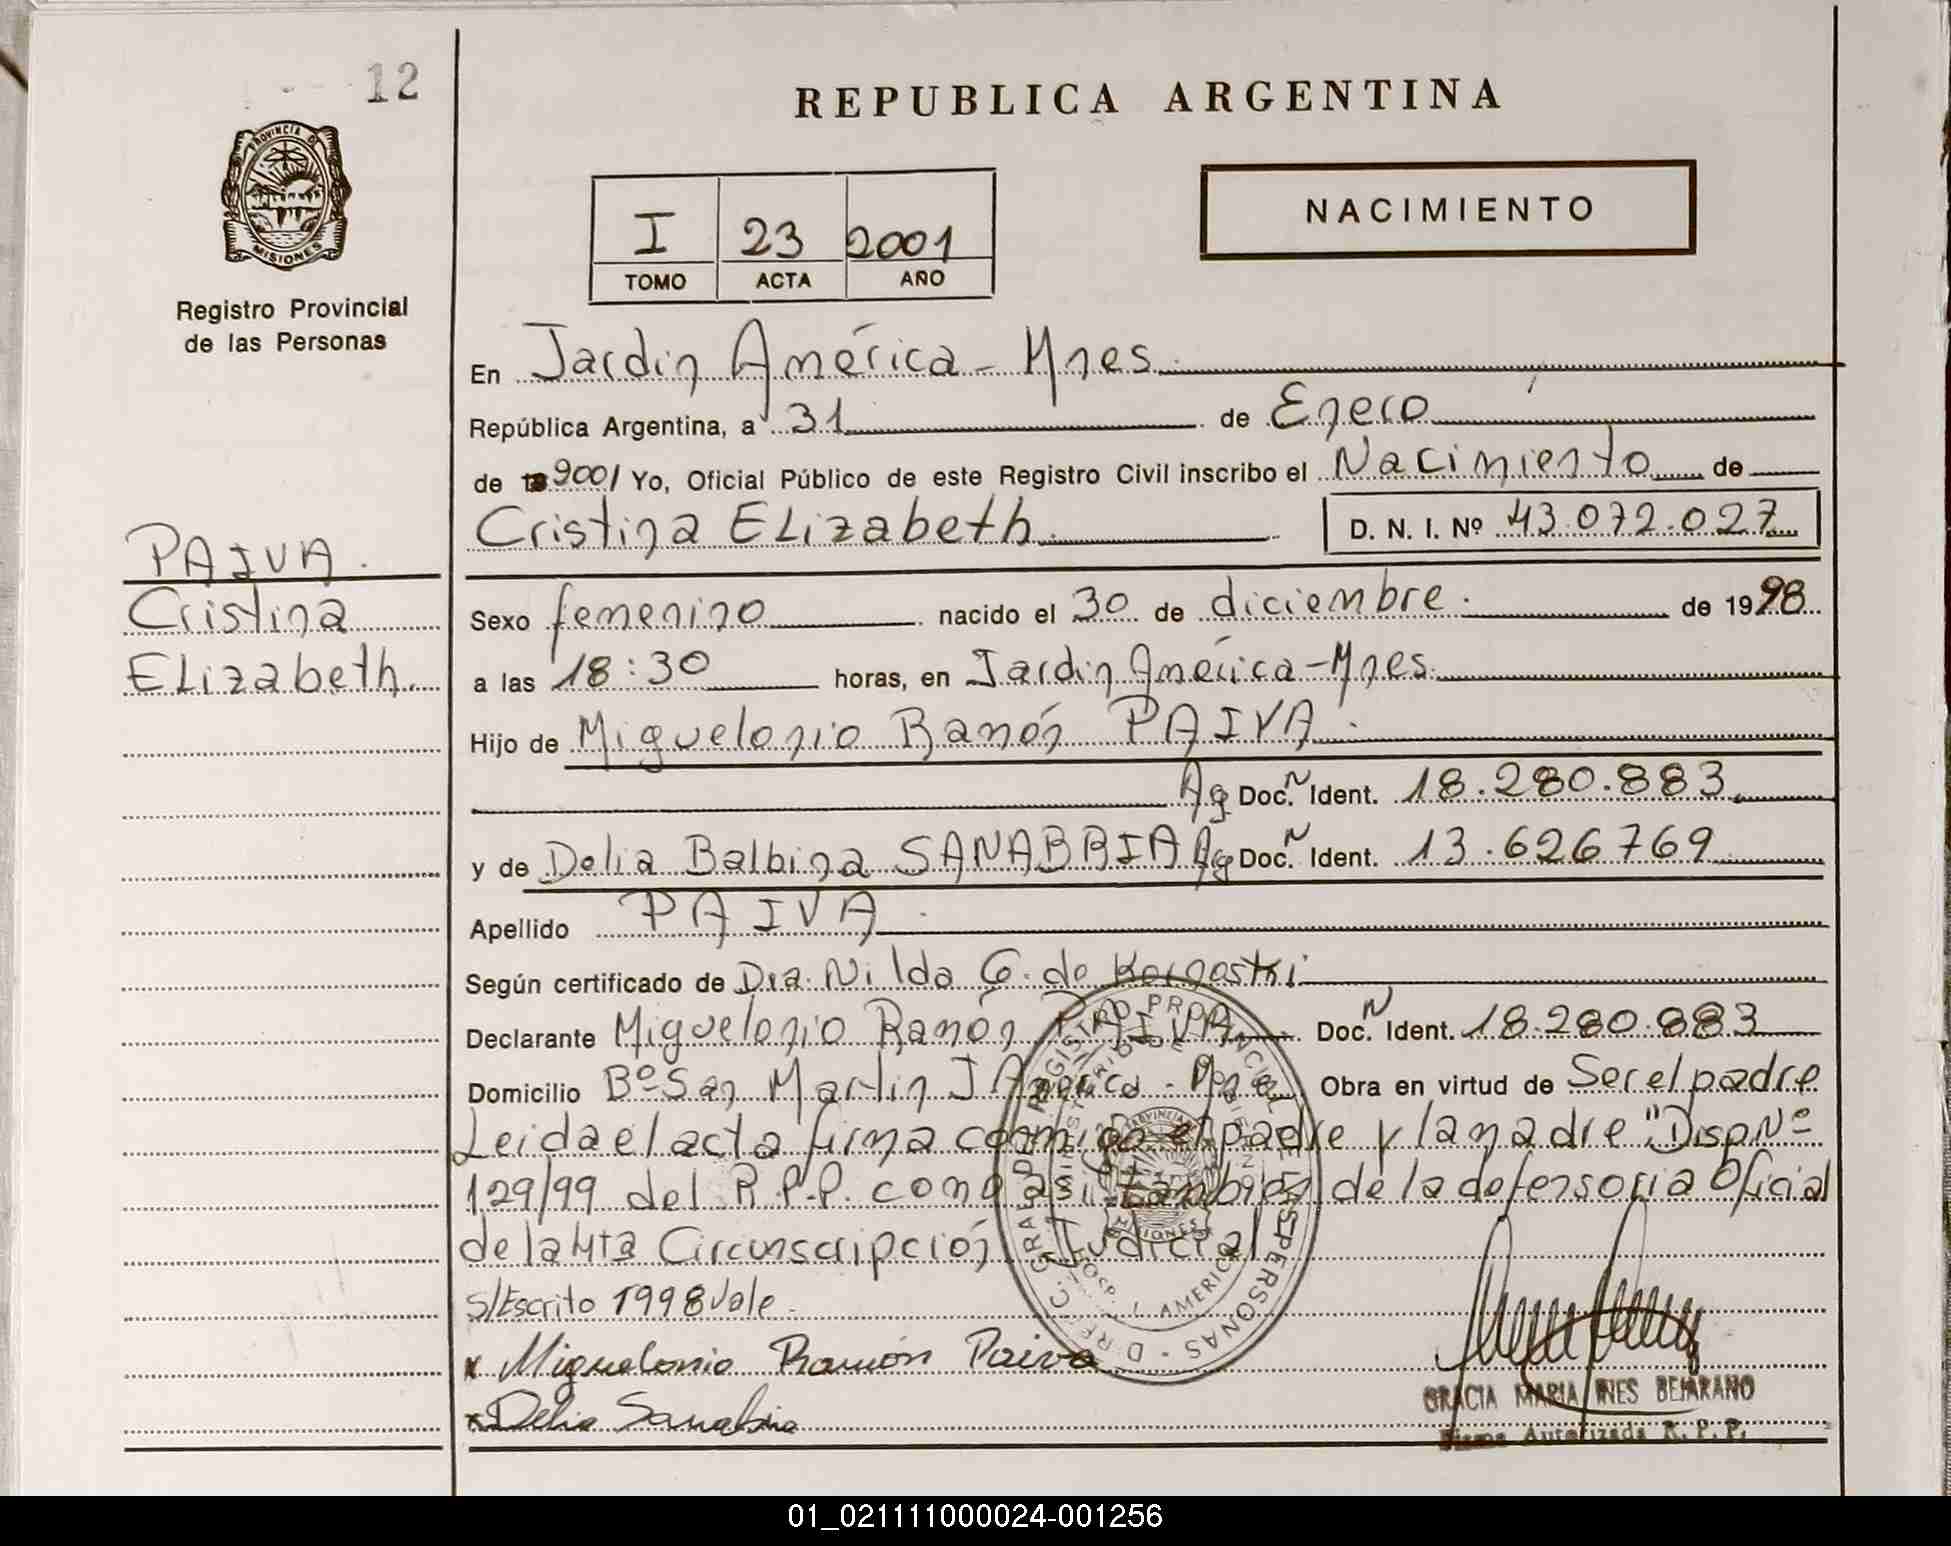 12
REPUBLICA ARGENTINA
PROVINCIA DE
MISIONES
Registro Provincial
de las Personas
I 23 2001
TOMO ACTA AÑO
NACIMIENTO
En Jardin América - Mnes.
República Argentina, a 31 de Enero
de 2001 Yo, Oficial Público de este Registro Civil inscribo el Nacimiento de
Cristina ELizabeth D. N. I. Nº 43.072.027
PAIVA.
Cristina
ELizabeth.
Sexo femenino nacido el 30 de diciembre. de 1998
a las 18:30 horas, en Jardin América-Mnes.
Hijo de Miguelonio Ramón PAIVA.
Ag Doc. N Ident. 18.280.883
y de Delia Balbina SANABRIA Ag Doc. N Ident. 13.626769
Apellido PAIVA.
Según certificado de Dra. Nilda G. de
Declarante Miguelonio Ramón PAIVA Doc. N Ident. 18.280.883
Domicilio Bº San Martin J América - Mnes Obra en virtud de Ser el padre
Leida el acta firma conmigo el padre y la madre "Disp Nº
129/99 del R.P.P. como asi tambien de la defensoria Oficial
de la 4ta Circunscripción Judicial
S/Escrito 1998 Vale.
x Miguelonio Ramón Paiva
x Delia Sanabria
GRACIA MARIA INES BEJARANO
Firma Autorizada R. P. P.
01_021111000024-001256